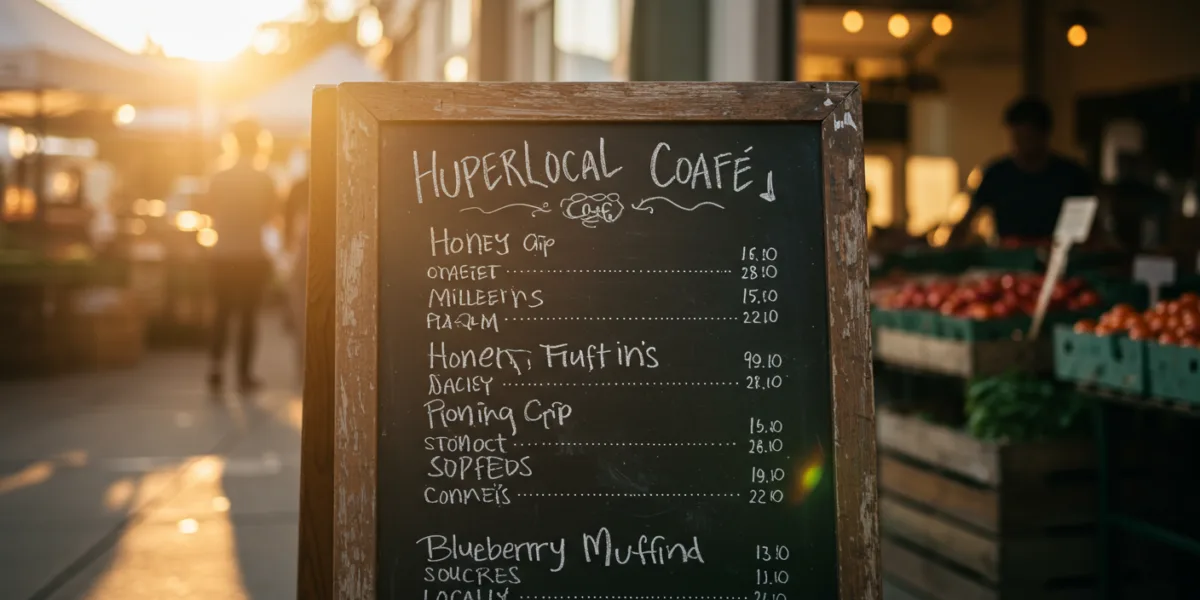 HUPERLOCAL COAFÉ
Café
HONEY GIP 16.10
OTAEIET 28.10
MILLEERNS 15.10
22.10
HONERT, FIUFTIN'S 99.10
DACIEY 28.10
RONING CRIP 15.10
STOMOCT 26.10
SOPFEDS 19.10
CONMEIS 22.10
Blueberry Muffind 13.10
SOUCRES 11.10
LOCALLY